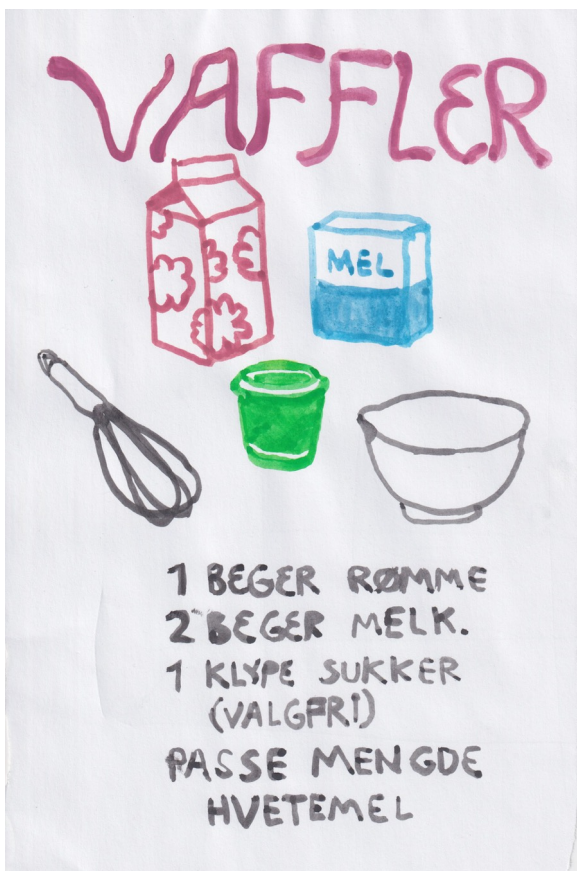 VAFFLER
MEL
1 BEGER RØMME
2 BEGER MELK.
1 KLYPE SUKKER
(VALGFRI)
PASSE MENGDE
HVETEMEL